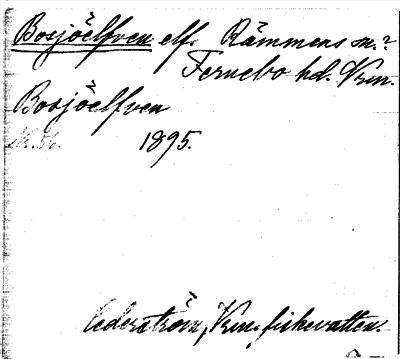 Bosjöelfven elf. Rämmens sn.?
Fernebo hd. Vrm.
Bosjöelfven
1895.
Cederström, Vrm. fiskevatten.